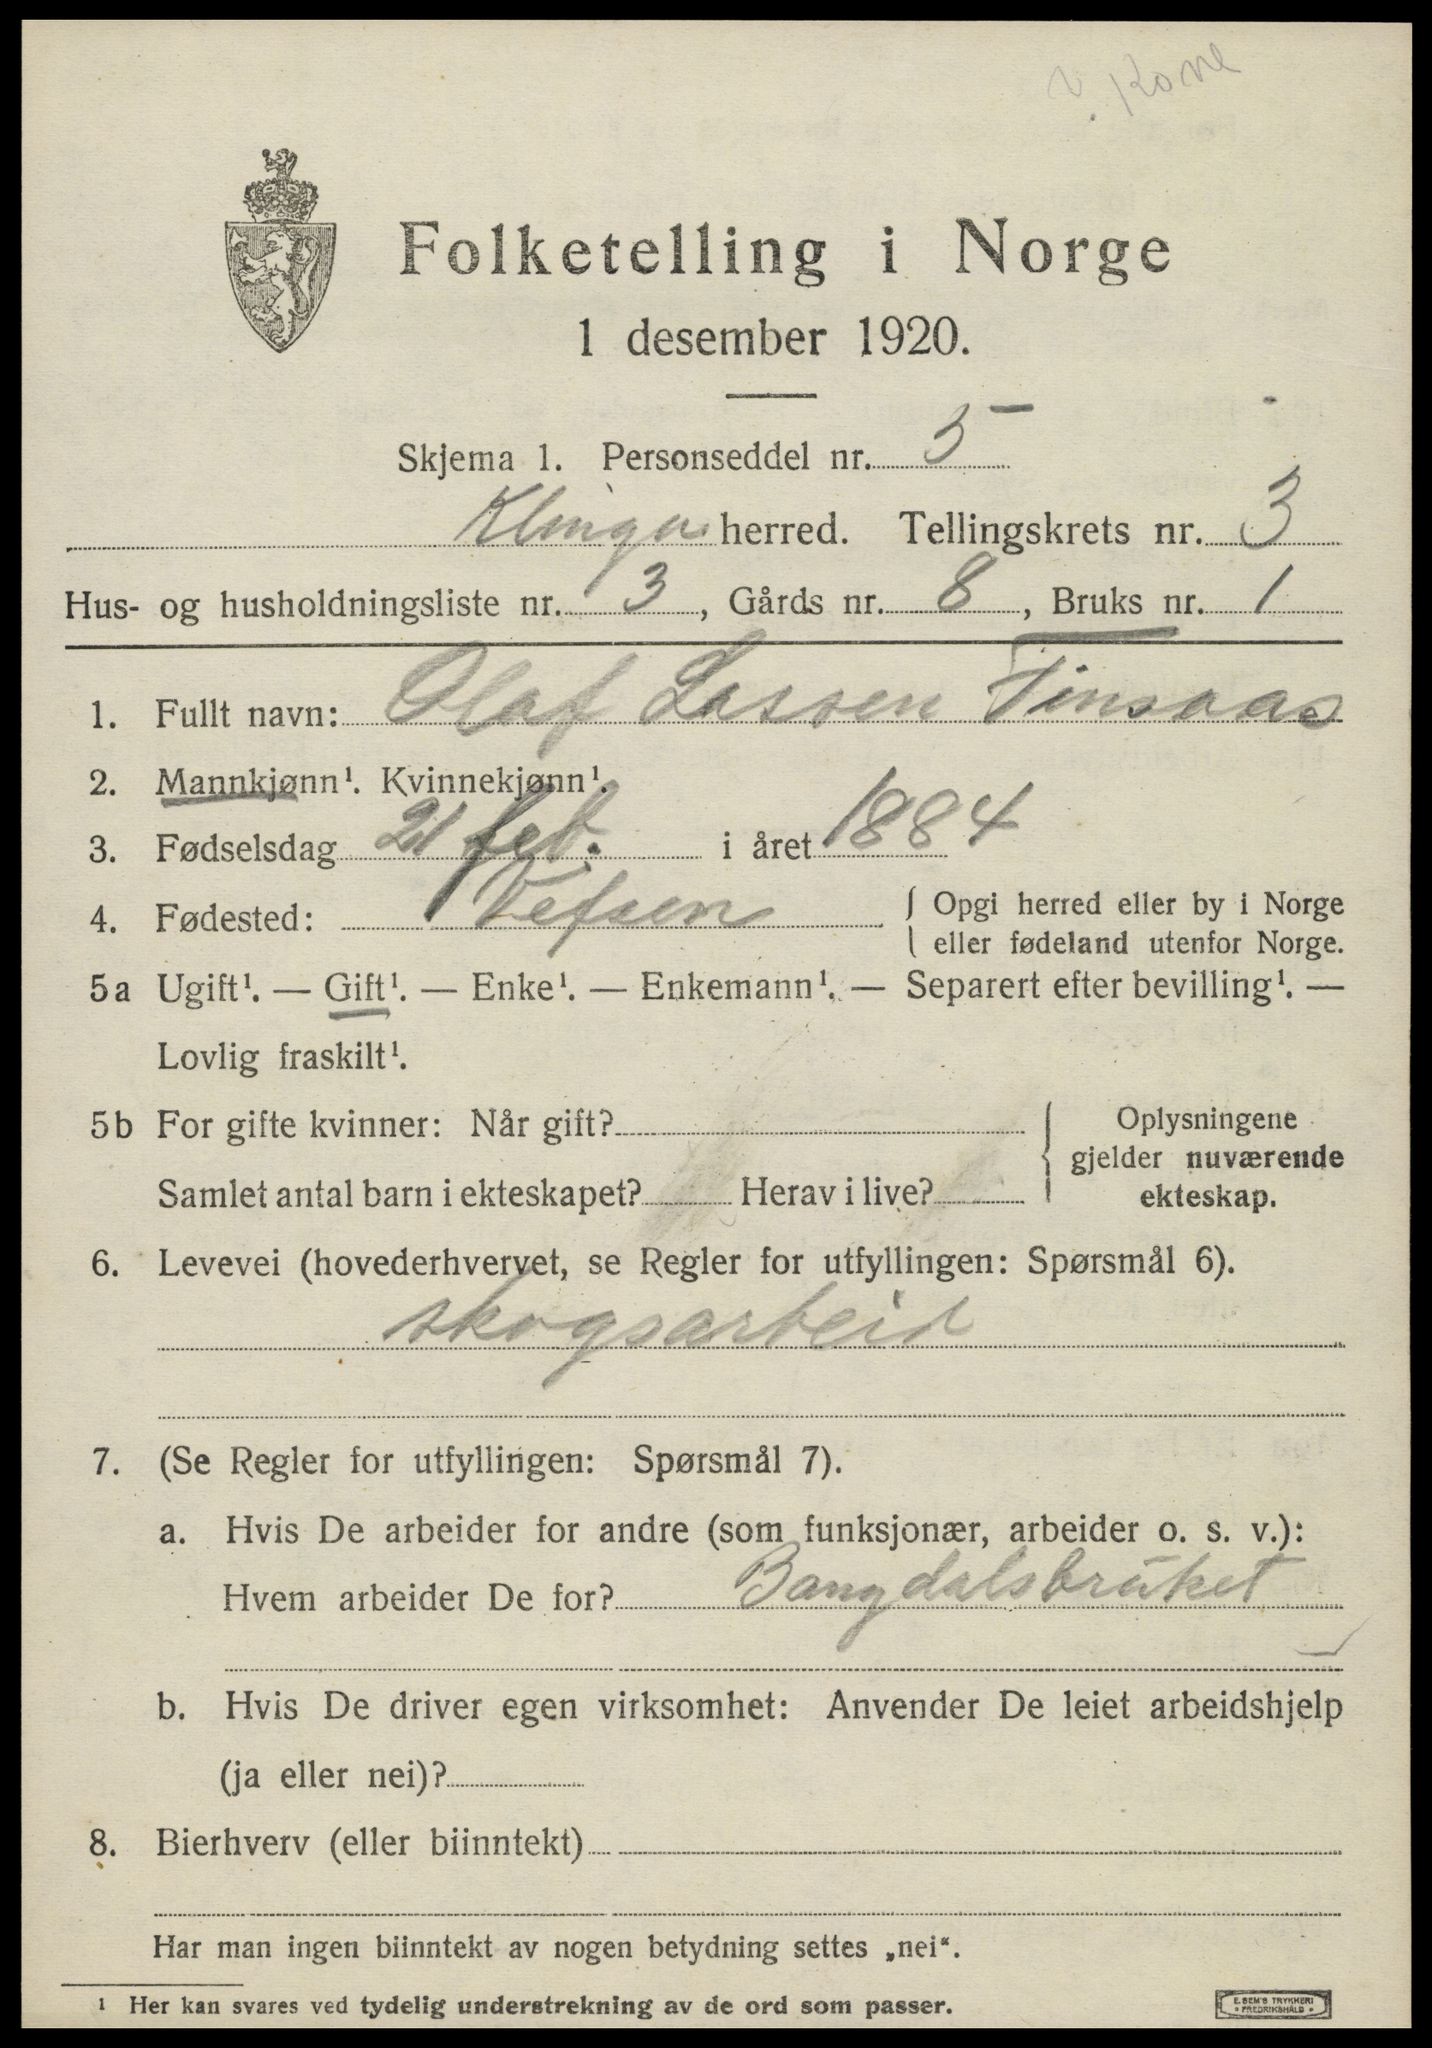 v. Kone
Folketelling i Norge
1 desember 1920.
Skjema 1. Personseddel nr. 5
Klinga herred. Tellingskrets nr. 3
Hus- og husholdningsliste nr. 3, Gårds nr. 8, Bruks nr. 1
1. Fullt navn: Olaf Lassen Finsaas
2. Mannkjønn¹. Kvinnekjønn¹.
3. Fødselsdag 21 feb. i året 1884
4. Fødested: Vefsen { Opgi herred eller by i Norge
eller fødeland utenfor Norge.
5a Ugift¹. — Gift¹. — Enke¹. — Enkemann¹. — Separert efter bevilling¹. —
Lovlig fraskilt¹.
5b For gifte kvinner: Når gift? { Oplysningene
gjelder nuværende
Samlet antal barn i ekteskapet? Herav i live? ekteskap.
6. Levevei (hovederhvervet, se Regler for utfyllingen: Spørsmål 6).
skogsarbeid
7. (Se Regler for utfyllingen: Spørsmål 7).
a. Hvis De arbeider for andre (som funksjonær, arbeider o. s. v.):
Hvem arbeider De for? Bangdalsbruket
b. Hvis De driver egen virksomhet: Anvender De leiet arbeidshjelp
(ja eller nei)?
8. Bierhverv (eller biinntekt)
Har man ingen biinntekt av nogen betydning settes „nei“.
¹ Her kan svares ved tydelig understrekning av de ord som passer.
E. SEM'S TRYKKERI
• FREDRIKSHALD •